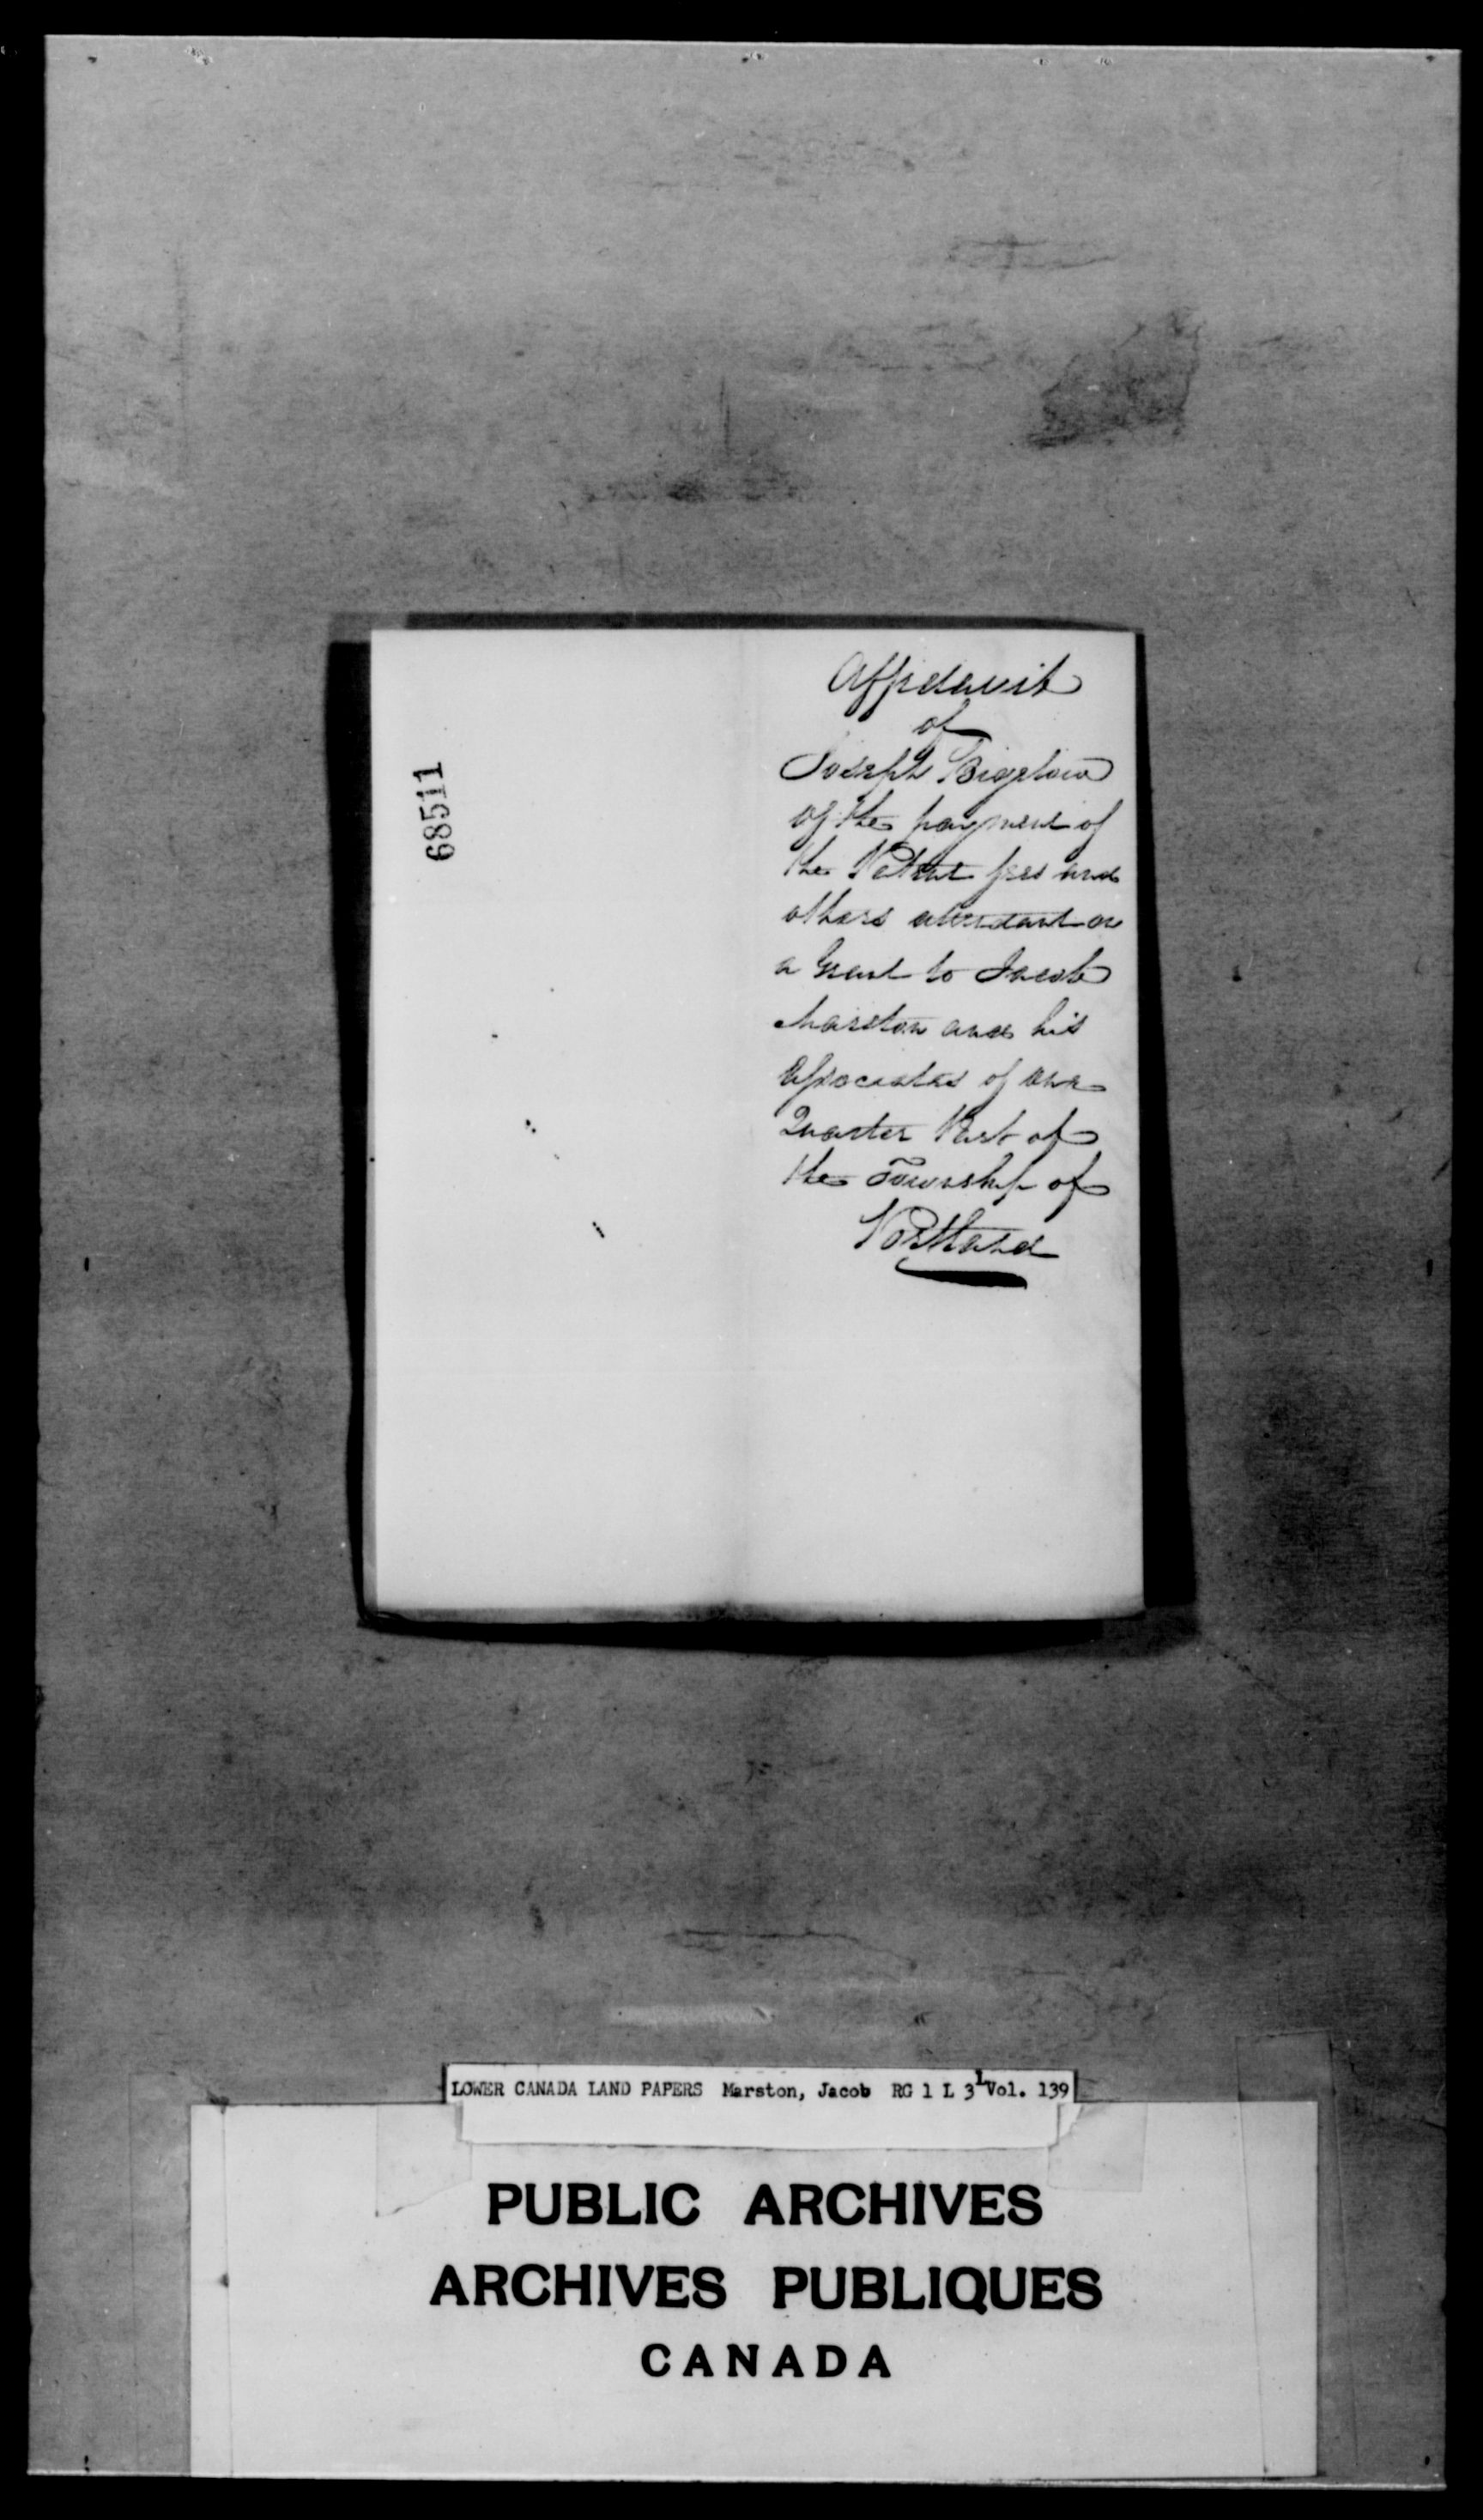 68511
Affidavit
of
Joseph Bigelow
of the payment of
the Patent fees and
others attendant on
a Grant to Jacob
Marston and his
Associates of one
Quarter Part of
the Township of
Portland
LOWER CANADA LAND PAPERS Marston, Jacob RG 1 L 3L Vol. 139
PUBLIC ARCHIVES
ARCHIVES PUBLIQUES
CANADA